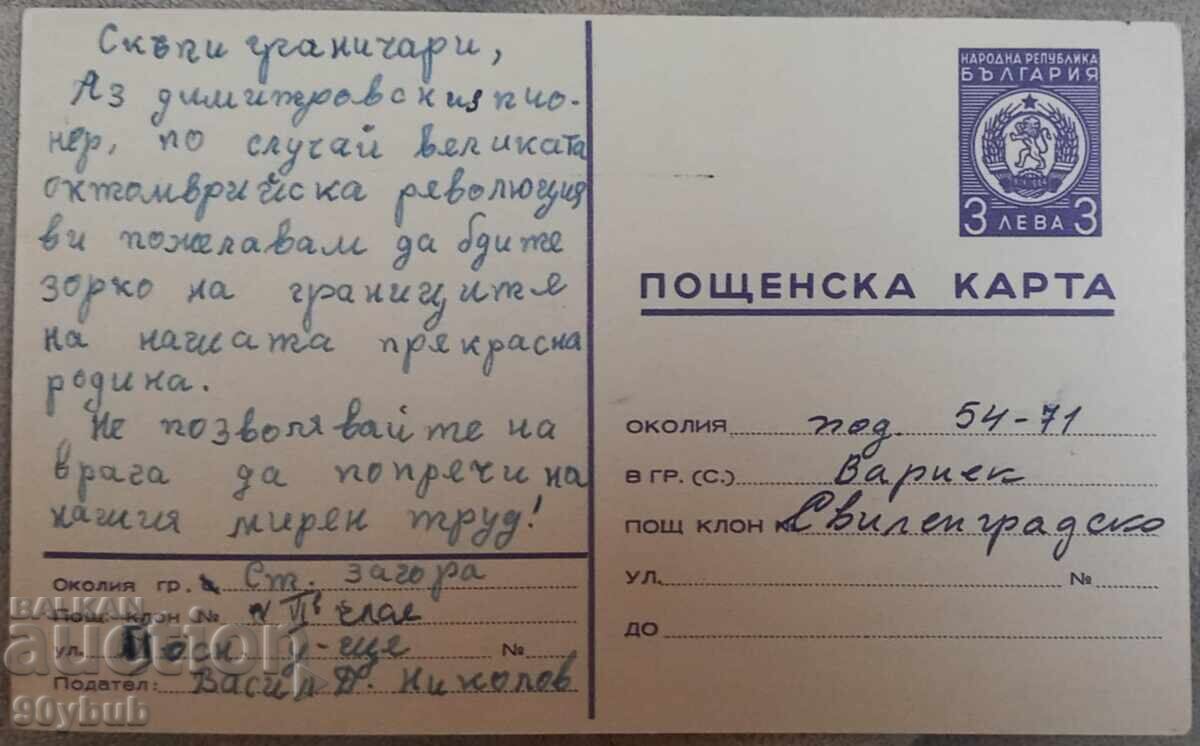 Скъпи граничари,
Аз димитровския пио-
нер, по случай великата
октомврийска революция
ви пожелавам да бдите
зорко на границитя
на нашата прякрасна
родина.
Не позволявайте на
врага да попрячи на
нашия мирен труд!
ОКОЛИЯ ГР. Ст. Загора
Пощ. клон № VIв клас
ул. осн у-ще №
Подател: Васил Д. Николов
НАРОДНА РЕПУБЛИКА
БЪЛГАРИЯ
9 IX 1944
3 ЛЕВА 3
ПОЩЕНСКА КАРТА
ОКОЛИЯ под. 54-71
В ГР. (С.) Вариек
ПОЩ КЛОН № Свиленградско
УЛ. №
ДО
BALKAN
auction
90ybub